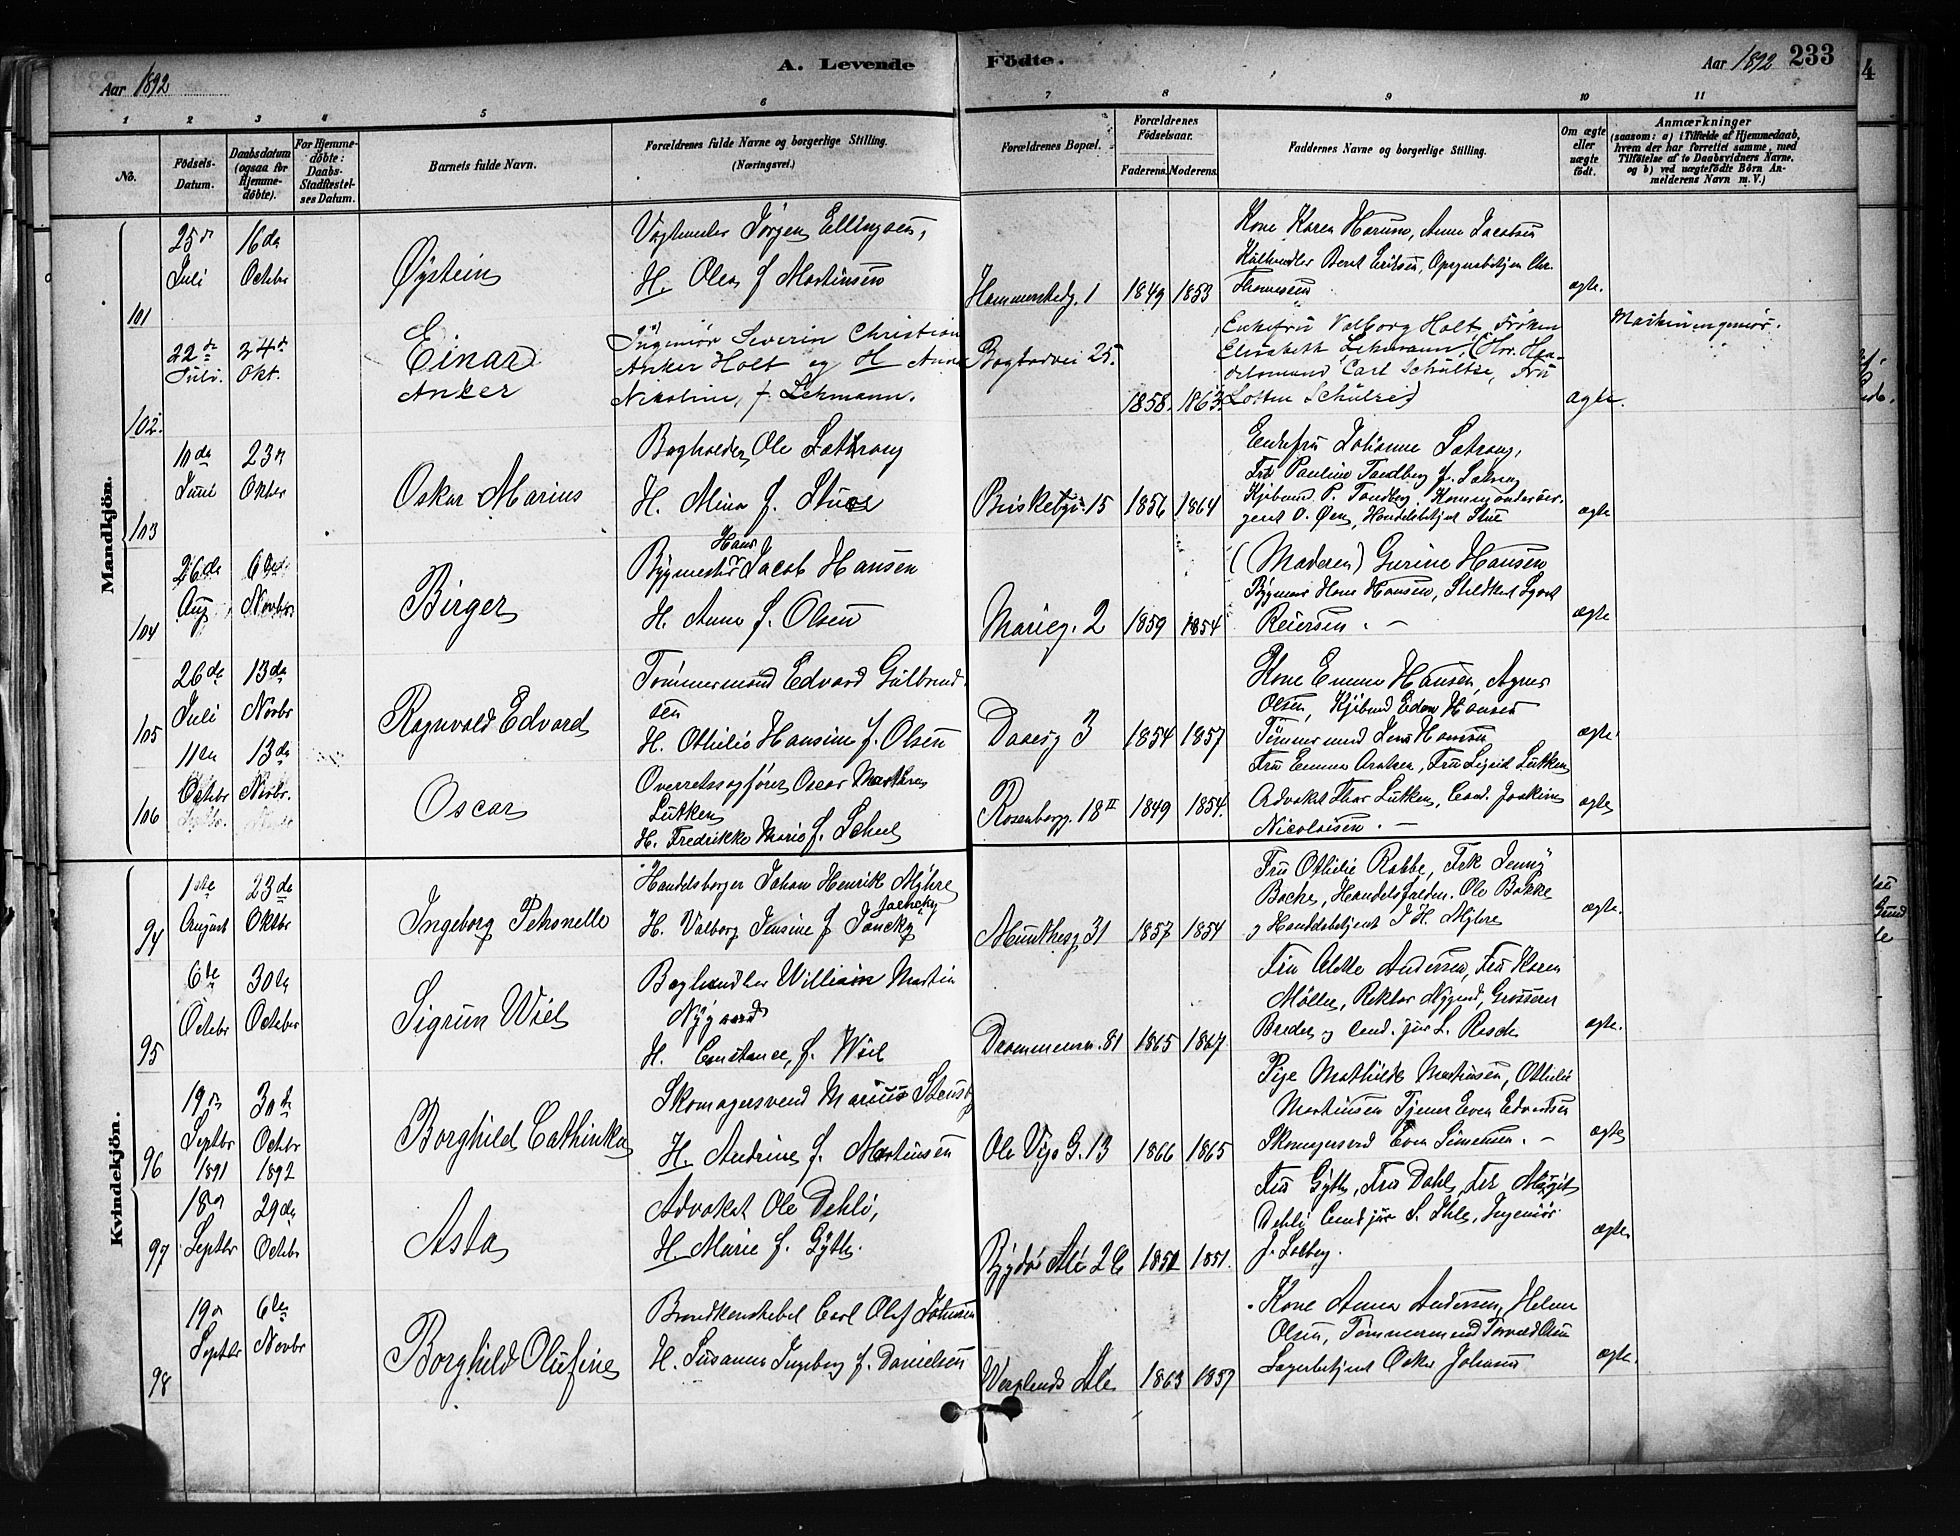 Aar 1892
A. Levende Födte.
Aar 1892 233
1 2 3 4 5 6 7 8 9 10 11
No.
Födsels-Datum.
Daabsdatum (ogsaa for Hjemmedöbte).
For Hjemmedöbte: Daabs-Stadfæstelses Datum.
Barnets fulde Navn.
Forældrenes fulde Navne og borgerlige Stilling.
(Næringsvei.)
Forældrenes Bopæl.
Forældrenes Födselsaar.
Faderens. Moderens.
Faddernes Navne og borgerlige Stilling.
Om ægte eller uægte födt.
Anmærkninger
(saasom: a) i Tilfælde af Hjemmedaab, hvem der har forrettet samme, med Tilföielse af to Daabsvidners Navne, og b) ved uægtefödte Börn Anmelderens Navn m. V.)
Mandkjön.
101
25de Juli
16de Octobr
Øystein
Jørgen Ellingsen,
H. Olea f. Martinsen
1849 1853
Kone Karen , Anna Jacobsen
Bernt Eriksen,
Thomesen
ægte.
102.
22de Juli.
24de Okt.
Einar
Anker
Ingeniør Severin Christian
Anker Holt og H Anna
Nikoline, f. Lehmann.
Bogstadvei 25.
1858. 1863.
Enkefru Valborg Holt, Frøken
Elisabeth Lehmann, Hr. Han-
delsmand Carl Schultze, Fru
Lotten Schulze
ægte.
Maskiningeniør.
103
10de Juni
23de Oktbr
Oskar Marius
Bogholder Ole Sætrang
H. Mina f. Stue
Briskebyv. 15
1856 1864
Enkefru Johanne Sætrang,
Frk Pauline Tandberg f. Sætrang
Kjøbmd P. Tandberg, Kommandersergent
O. Øen, Handelsbetjent Stue
ægte
104
26de Aug.
6te Novbr
Birger
Hans
Bygmester Jacob Hansen
H. Anna f. Olsen
Marieg. 2
1859 1854
(Moderen) Gurine Hansen
Bygmester Hans Hansen,
Reiersen. –
ægte
105
26de Juli
13de Novbr
Ragnvald Edvard
Tømmermand Edvard Gulbrand-
sen
H. Othilie Hansine f. Olsen
Daaesg 3
1854 1857
Kone Emma Hansen, Agnes
Olsen, Kjøbmd Edv Hansen
Tømmermand Jens Hansen
ægte.
106
11te Octobr
13de Novbr.
Oscar
Overretssagfører Oscar
Lütken
H. Fredrikke Marie f. Scheel
Rosenborgg. 18 II
1849 1854.
Fru Emma , Fru Sigrid Lütken
Advokat Thor Lütken, Cand. Joakim
Nicolaisen. –
ægte
Kvindekjön.
94
1ste August
23de Oktbr
Ingeborg Petronelle
Handelsborger Johan Henrik Myhre
H. Valborg Jensine f Jancky
Munthesg 31
1857 1854
Fru Othilie Rabbe, Frk Jenny
Bache, Ole Bakke
og Handelsbetjent J H. Myhre
ægte.
95
6te Octobr
30te October
Sigrun Wiel
Boghandler William Martin
Nygaard
H. Constance, f. Wiel
Drammensv. 81
1865 1867
Fru Andersen, Fru Karen
Møller, Rektor Nygaard, Grosserer
Breder og Cand. jur L. Resch
ægte.
96
19de Septbr 1891
30te Octobr 1892
Borghild Cathinka
Skomagersvend Marius Stensby
H. Andrine f. Martinsen
Ole Vigs G. 13
1866 1865
Pige Mathilde Martinsen, Othilie
Martinsen Tjener Even Edvartsen
Skomagersvd Even Simensen. –
ægte
97
18de Septbr
29de Octobr
Asta
Advokat Ole Dehli,
H. Marie f. Gyth.
Bygdø Alé 2 C
1851 1851.
Fru Gyth, Fru Dahl, Frk Margit
Dehli Cand jur S. Ihle, Ingeniør
J. Solberg.
ægte.
98
19de Septbr
6te Novbr
Borghild Olufine
Brandkonstabel Carl Olaf Johnsen
H. Susanna Ingeborg f. Danielsen
Vergelands Ale
1863 1857
Kone Anna Andersen, Helene
Olsen, Tømmermand Torvald Olsen
Lagerbetjent Oskar Johnsen
ægte.